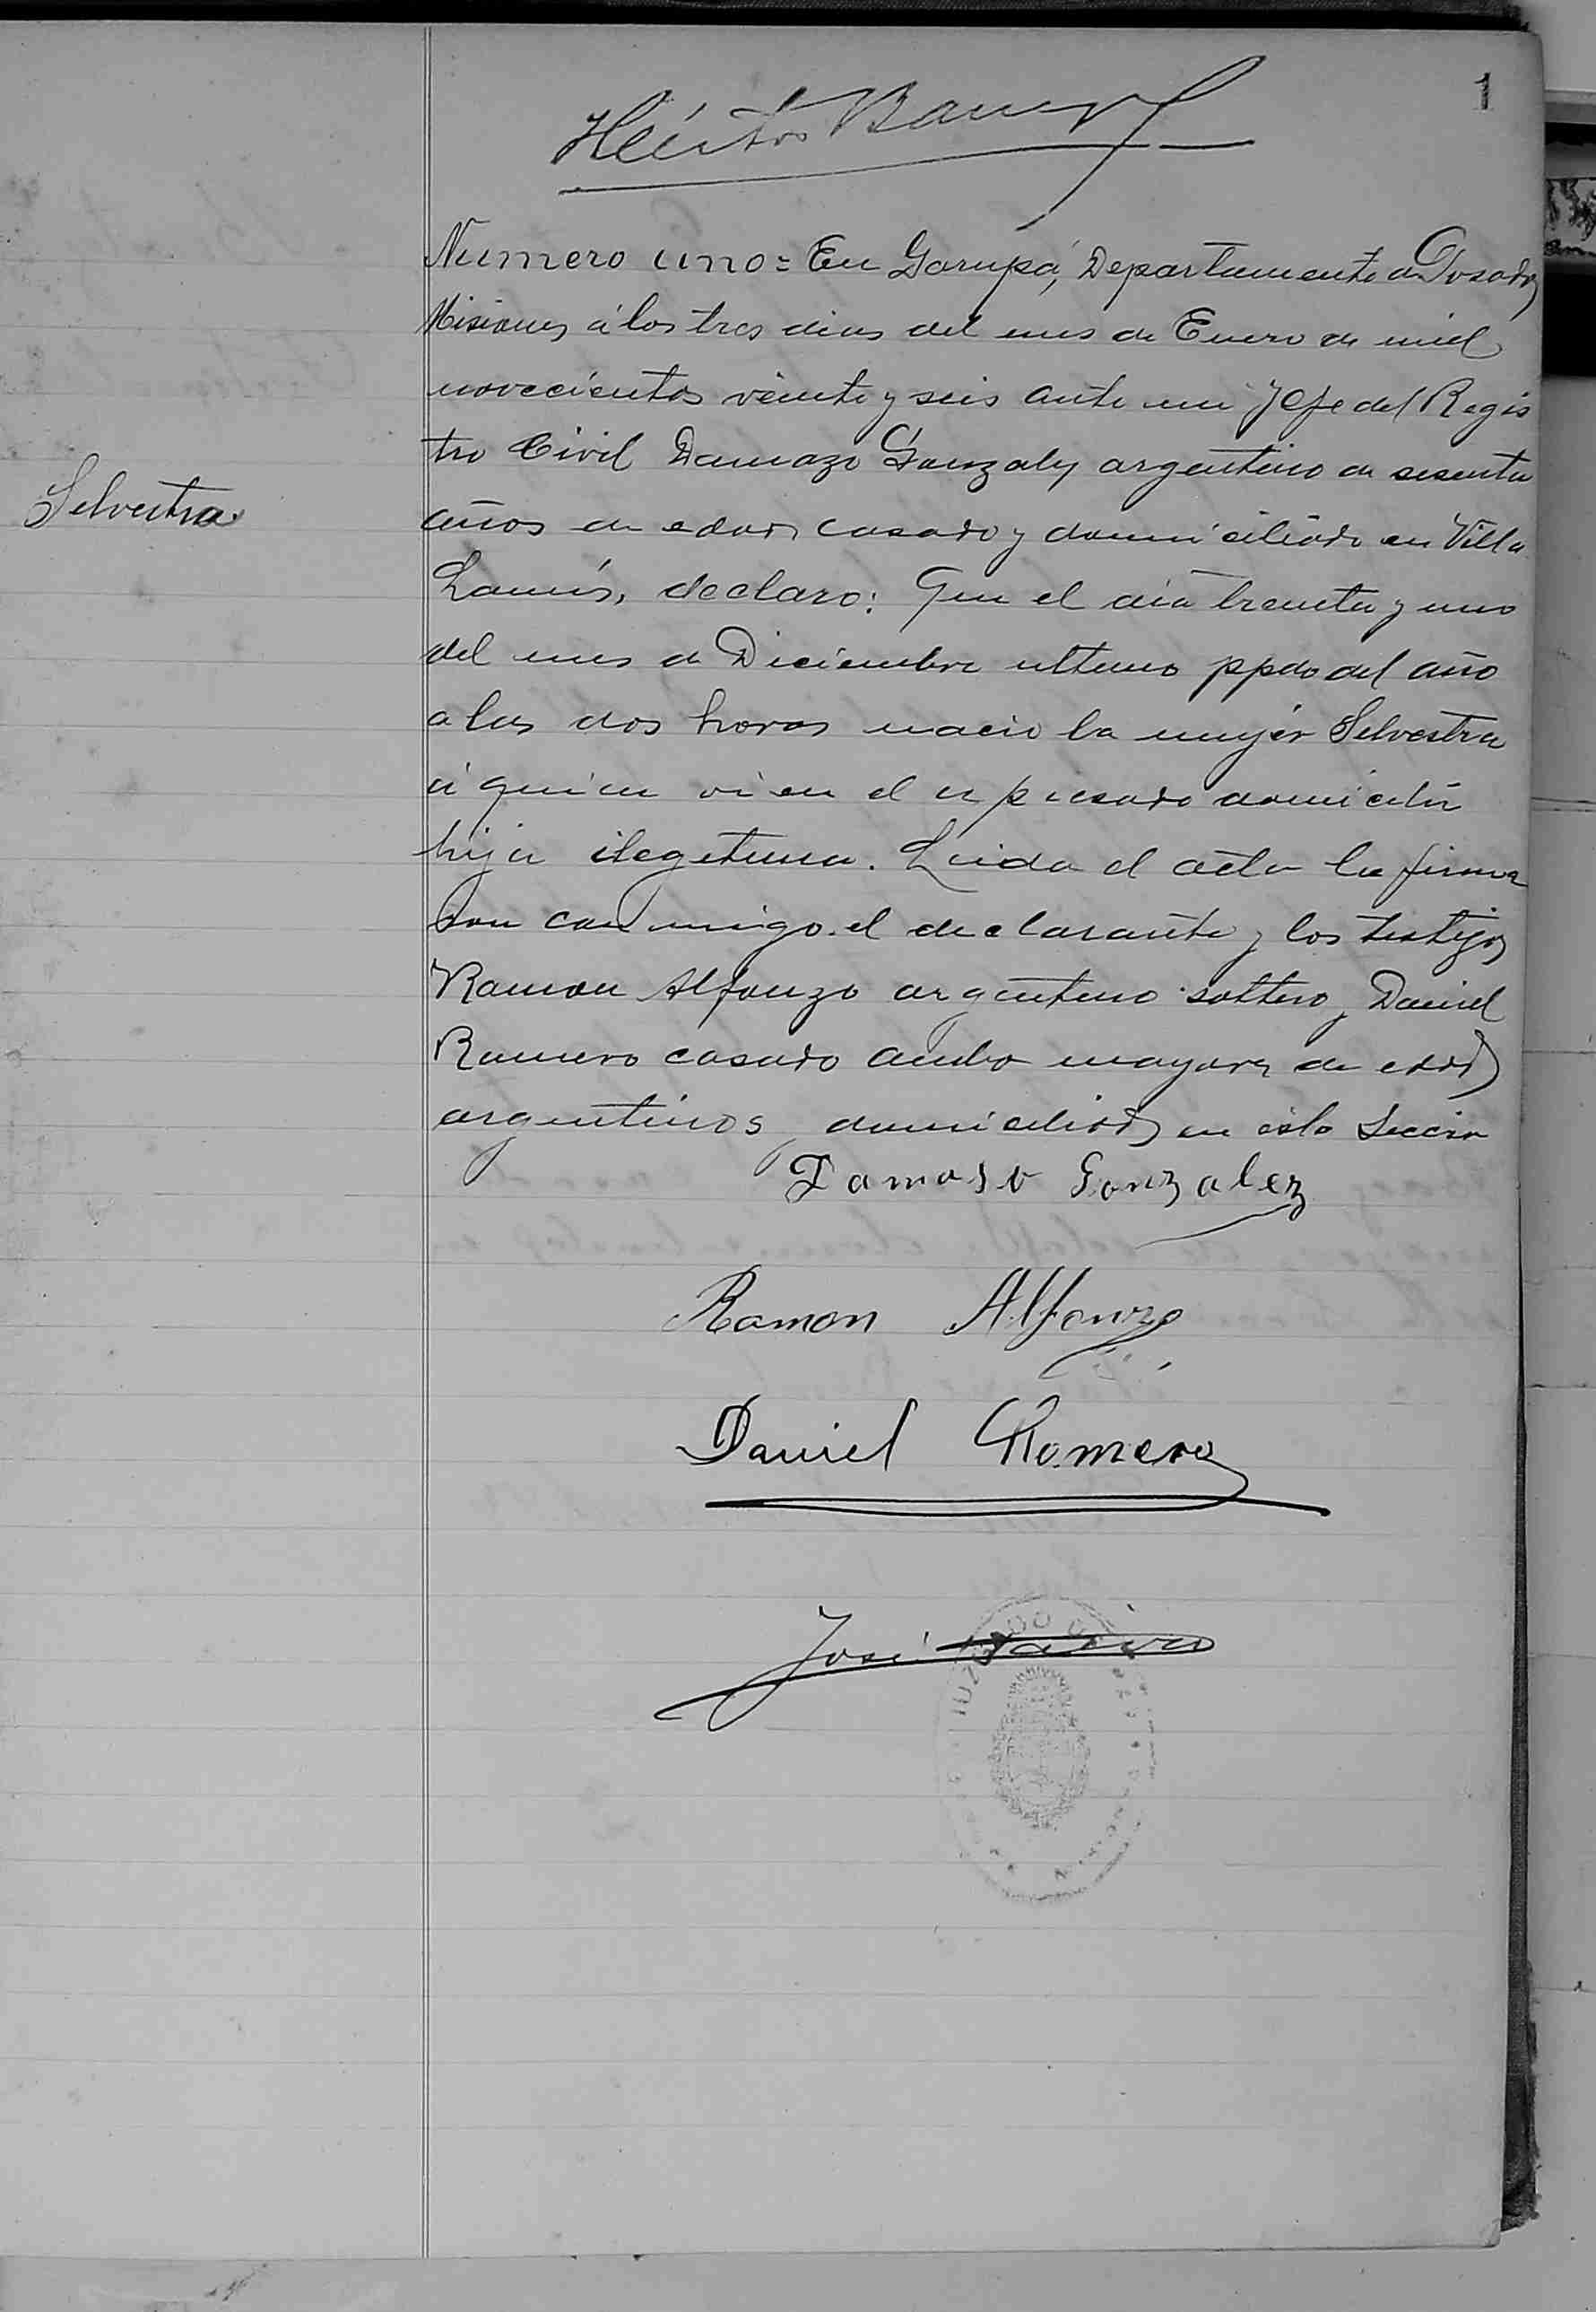 1
Héctor
Numero uno = En Garupá, Departamento de Posadas
Misiones á los tres dias del mes de Enero de mil
novecientos veinte y seis ante mi Jefe del Regis
tro Civil Damazo Gonzalez argentino de sesenta
Selvestra
años de edad casado y domiciliado en Villa
Lanús, declaro: Que el dia treinta y uno
del mes de Diciembre ultimo ppdo del año
a las dos horas nacio la mujer Selvestra
á quien vi en el expresado domicilio
hija ilegitima. Leida el acta la firma
ron conmigo el declarante y los testigos
Ramon Alfonzo argentino soltero y Daniel
Romero casado ambo mayores de edad
argentinos domiciliados en esta Sección
Damaso Gonzalez
Ramon Alfonzo
Daniel Romero
José